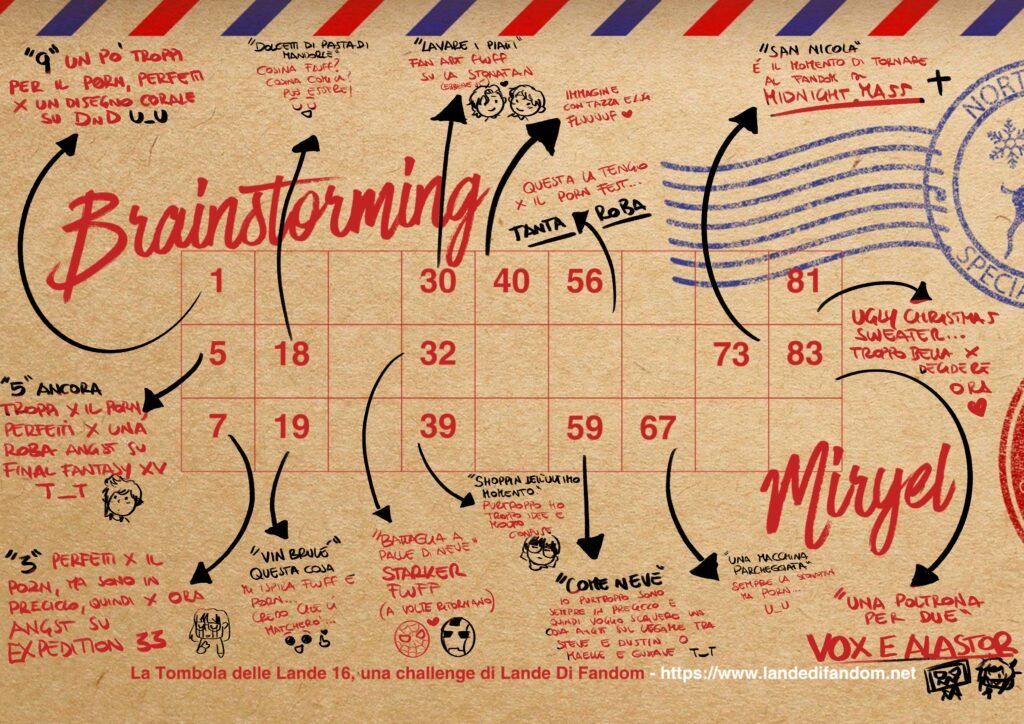 "9" UN PO' TROPPI
PER IL PORN, PERFETTI
X UN DISEGNO CORALE
SU DND U_U
"DOLCETTI DI PASTA DI
MANDORLE"
COSINA FLUFF?
COSINA COMICA?
PUÒ ESSERE!
"LAVARE I PIATTI"
FAN ART FLUFF
SU LA STONATAN
IMMAGINE
CON TAZZA ELSA
FLUUUUF
"SAN NICOLA"
È IL MOMENTO DI TORNARE
AL FANDOM DI
MIDNIGHT MASS +
NORT
SPECIA
QUESTA LA TENGO
X IL PORN FEST...
TANTA ROBA
Brainstorming
1 30 40 56 81
5 18 32 73 83
7 19 39 59 67
UGLY CHRISTMAS
SWEATER...
TROPPO BELLA X
DECIDERE
ORA
"5" ANCORA
TROPPI X IL PORN,
PERFETTI X UNA
ROBA ANGST SU
FINAL FANTASY XV
T_T
Miryel
"3" PERFETTI X IL
PORN, MA SONO IN
PRECICLO, QUINDI X ORA
ANGST SU
EXPEDITION 33
"VIN BRULÉ"
QUESTA COSA
MI ISPIRA FLUFF E
PORN...
CREDO CHE LI
MATCHERÒ...
"BATTAGLIA A
PALLE DI NEVE"
STARKER
FLUFF
(A VOLTE RITORNANO)
"SHOPPIN DELL'ULTIMO
MOMENTO"
PURTROPPO HO
TROPPE IDEE E
MOLTO
CONFUSE
"COME NEVE"
IO PURTROPPO SONO
SEMPRE IN PRECICLO E
QUINDI VOGLIO SCRIVERE UNA
COSA ANGST SUL LEGAME TRA
STEVE E DUSTIN O
MAELLE E GUSTAVE T_T
"UNA MACCHINA
PARCHEGGIATA"
SEMPRE LA STONATAN
MA PORN...
U_U
"UNA POLTRONA
PER DUE"
VOX E ALASTOR
La Tombola delle Lande 16, una challenge di Lande Di Fandom - https://www.landedifandom.net